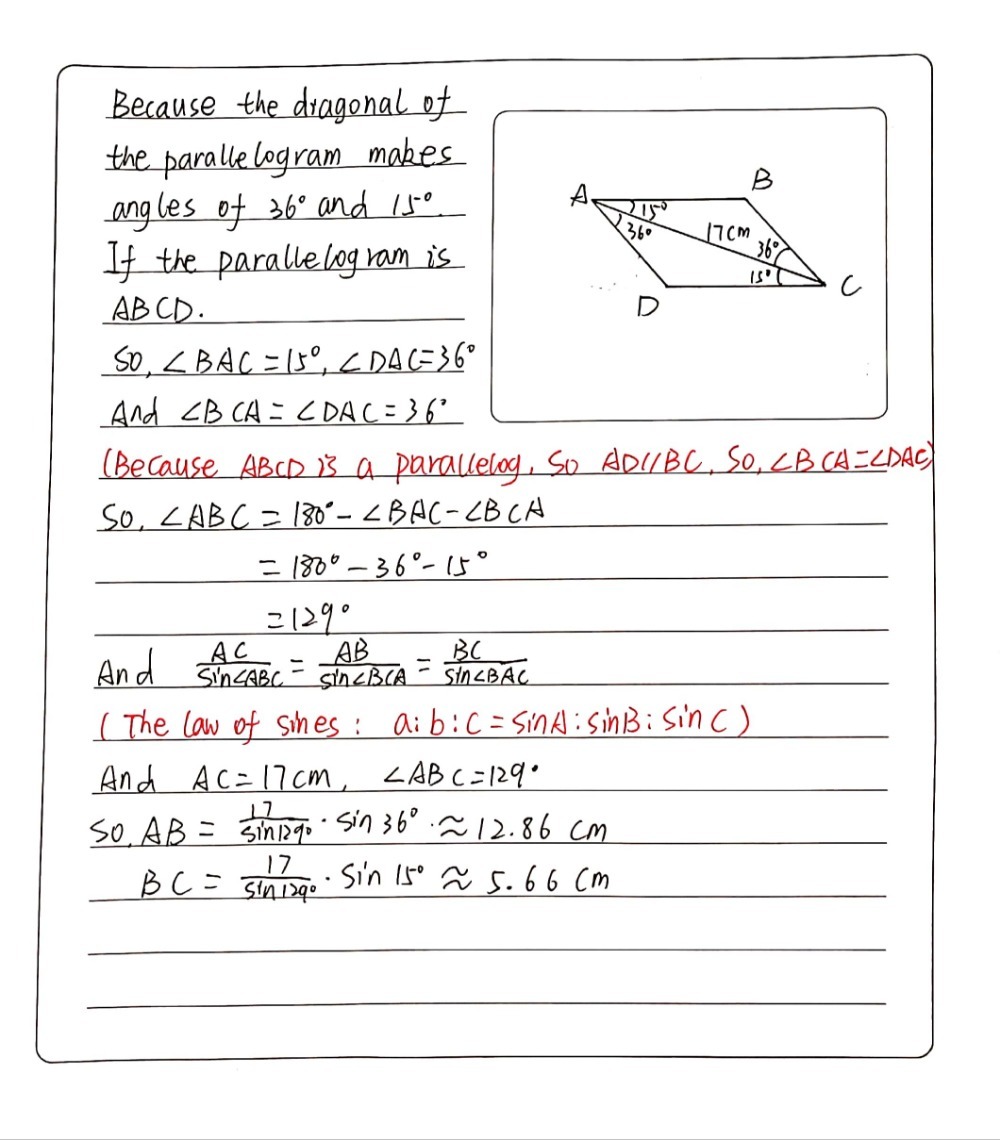 Because the dragonal of
the parallelogram makes
angles of 36° and 15°.
If the parallelogram is
ABCD.
A
B
15°
36°
17cm
36°
15°
C
D
So, ∠BAC=15°, ∠DAC=36°
And ∠BCA = ∠DAC = 36°
(Because ABCD is a parallelog, So AD//BC, So, ∠BCA=∠DAC)
So, ∠ABC = 180° - ∠BAC - ∠BCA
= 180° - 36° - 15°
= 129°
And AC/Sin∠ABC = AB/Sin∠BCA = BC/Sin∠BAC
(The law of sines: a:b:c = SinA:sinB:SinC)
And AC=17cm, ∠ABC=129°
So, AB = 17/Sin129° · Sin 36° ≈ 12.86 cm
BC = 17/Sin129° · Sin 15° ≈ 5.66 cm